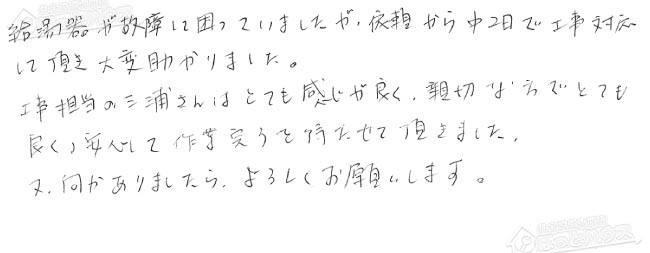 給湯器が故障して困っていましたが、依頼から中2日で工事対応
して頂き大変助かりました。
工事担当の三浦さんはとても感じが良く、親切な方でとても
良く、安心して作業完了を待たせて頂きました。
又、何かありましたら、よろしくお願いします。